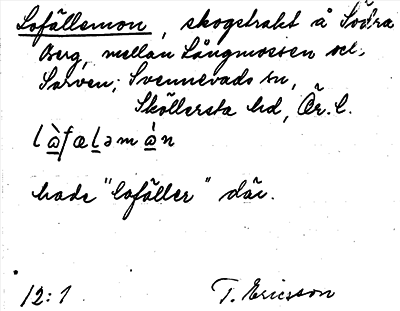 Lofällemon, skogstrakt å Södra
Berg, mellan Långmossen och
Sarven; Svennevads sn,
Sköllersta hd, Ör. l.
lὰfæləmὰn
hade "lofäller" där.
12:1 T. Ericsson